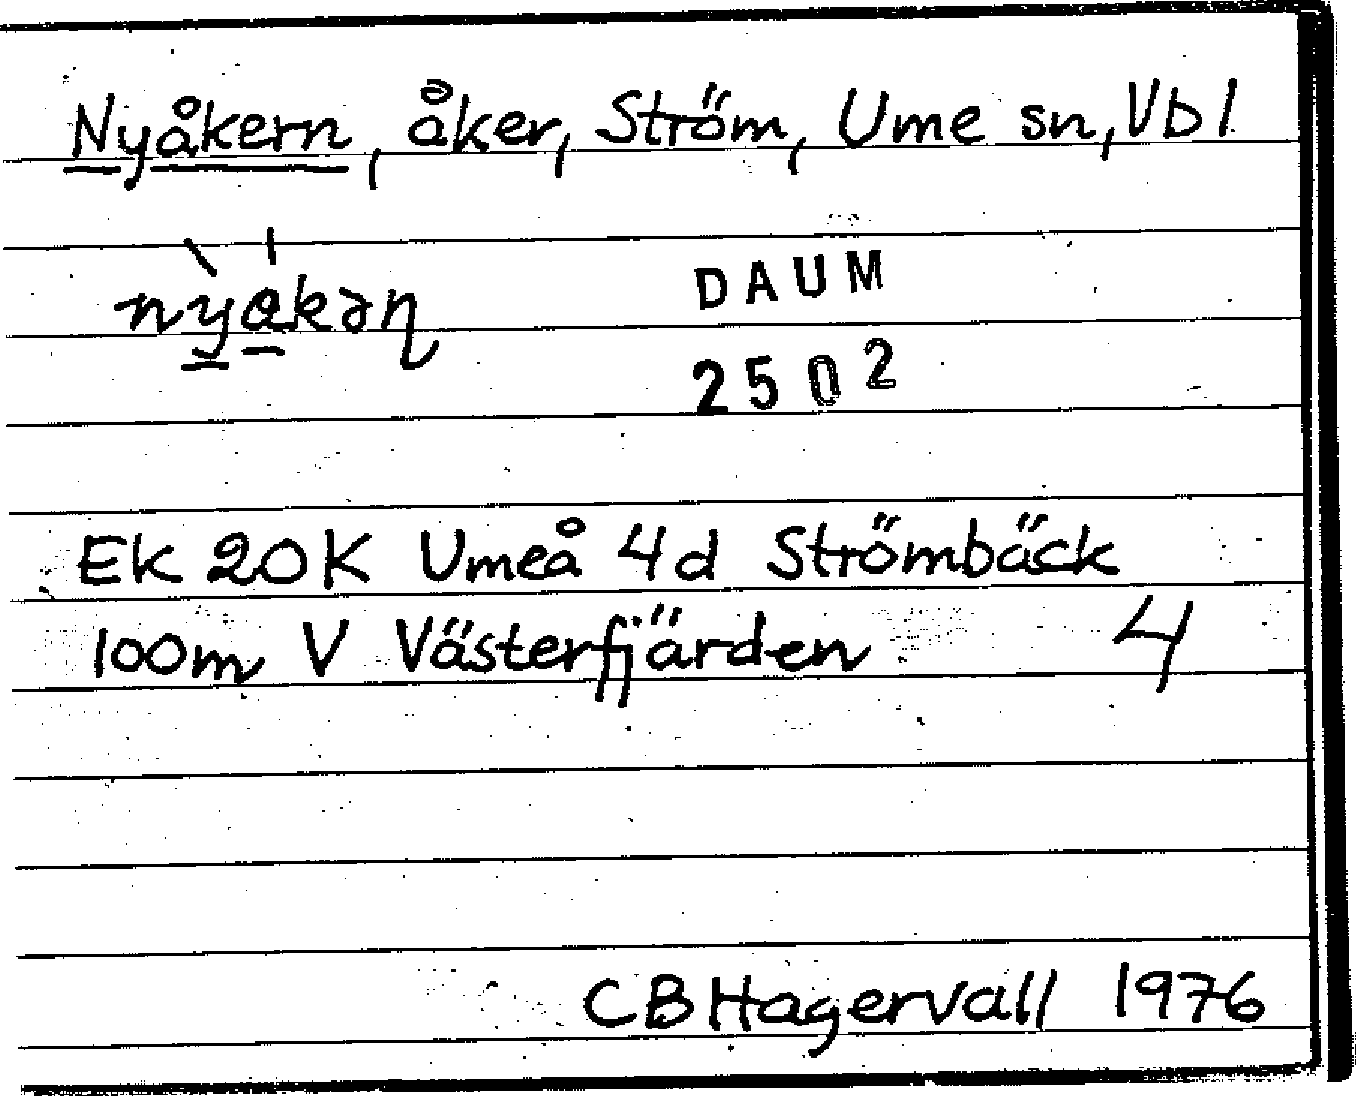 Nyåkern, åker, Ström, Ume sn, Vbl
nỳákəɳ DAUM
2502
Ek 20K Umeå 4d Strömbäck
100m V Västerfjärden 4
CBHagervall 1976